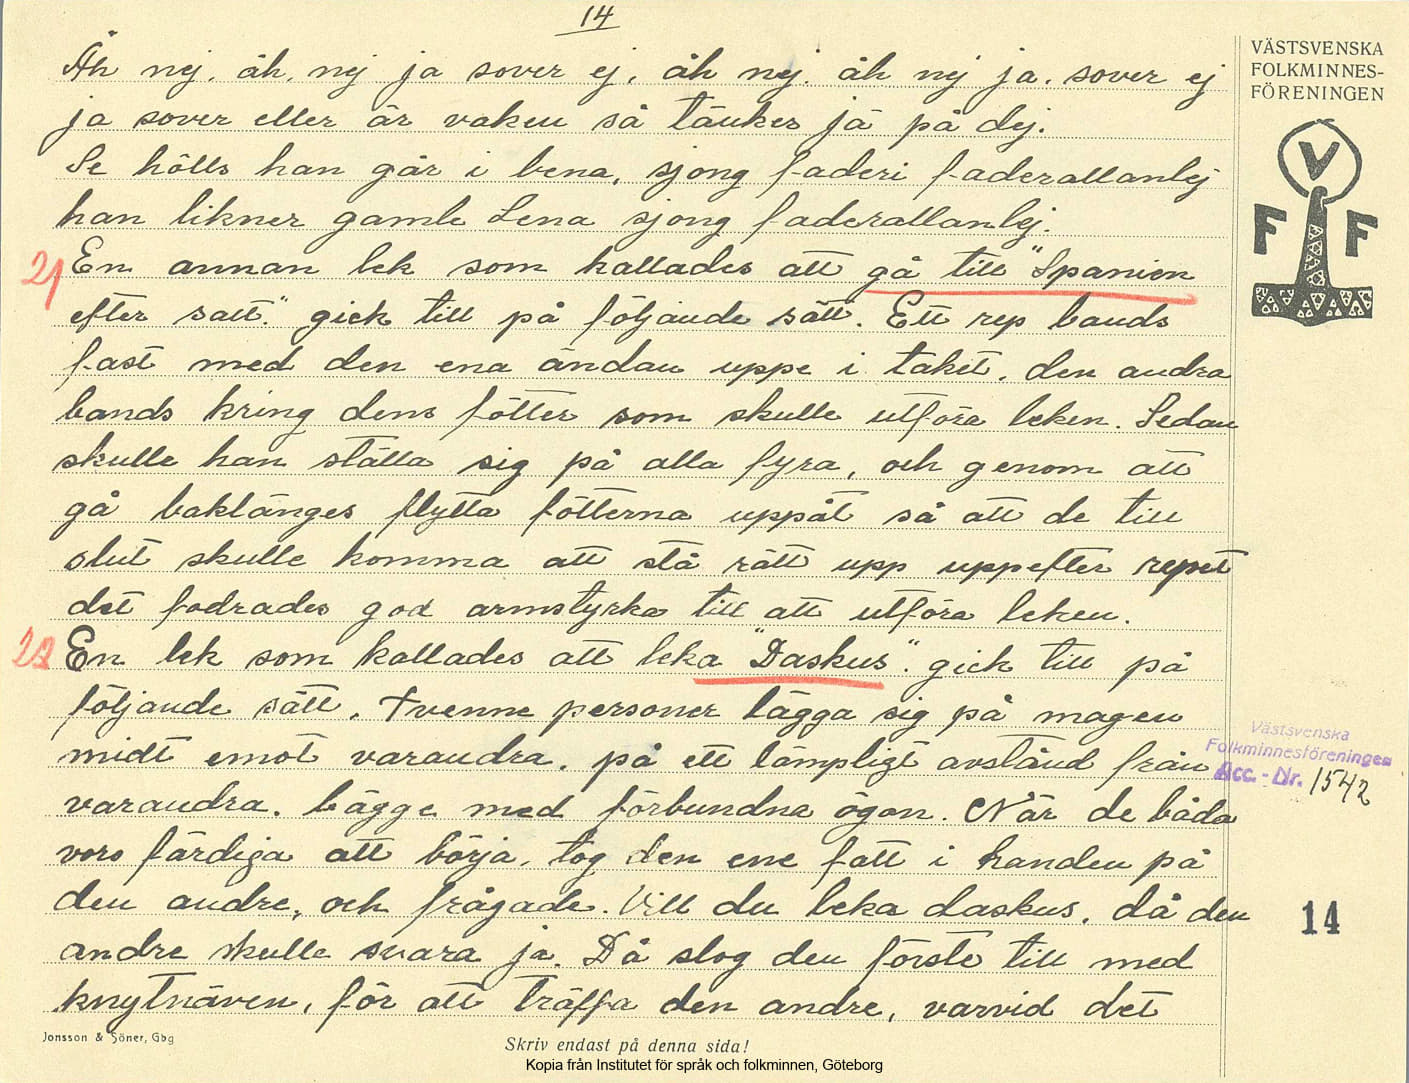 14
Åh nej, åh, nej ja sover ej, åh nej. åh nej ja. sover ej
ja sover eller är vaken så tänker ja på dej.
Se hölls han går i bena, sjong faderi faderallanlej
han likner gamle Lena sjong faderallanlej.
21 En annan lek som kallades att gå till "Spanien
efter salt". gick till på följande sätt. Ett rep bands
fast med den ena ändan uppe i taket, den andra
bands kring dens fötter som skulle utföra leken. Sedan
skulle han ställa sig på alla fyra, och genom att
gå baklänges flytta fötterna uppåt så att de till
slut skulle komma att stå rätt upp uppefter repet
det fodrades god armstyrka till att utföra leken.
22 En lek som kallades att leka "Daskus". gick till på
följande sätt. Tvenne personer lägga sig på magen
midt emot varandra. på ett lämpligt avstånd från
varandra. bägge med förbundna ögon. När de båda
voro färdiga att börja, tog den ene fatt i handen på
den andre, och frågade. Vill du leka daskus. då den
andre skulle svara ja. Då slog den förste till med
knytnäven, för att träffa den andre, varvid det
VÄSTSVENSKA
FOLKMINNES-
FÖRENINGEN
V
F F
Västsvenska
Folkminnesföreningen
Acc. - Nr. 1542
14
Jonsson & Söner, Gbg
Skriv endast på denna sida!
Kopia från Institutet för språk och folkminnen, Göteborg